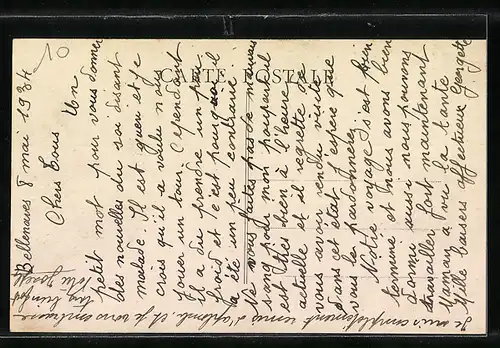 10
CARTE POSTALE
Bellenaves 8 mai 1934
Chers tous Un
petit mot pour vous donner
des nouvelles du soi disant
malade. Il est guéri et je
crois qu'il a voulu nous
jouer un tour. Cependant
il a du prendre un peu
froid et c'est pourquoi il
a été un peu contrarié.
Ne vous faites pas de mauvais
sang pour mon poupard il
est très bien à l'heure
actuelle et il regrette de
vous avoir rendu visite
dans cet état. J'espère que
vous la pardonnerez
Notre voyage s'est bien
terminé et nous avons bien
dormi aussi nous pouvons
travailler fort maintenant
Maman a vu la tante
Mille baisers affectueux Georgette
Je suis complètement remis d'aplomb, et je vous embrasse
très fort
Votre Joseph